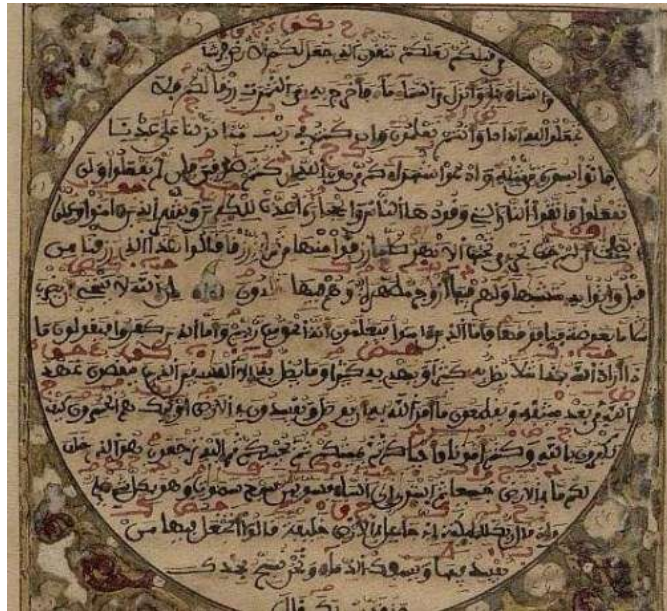 من قبلكم لعلكم تتقون الذي جعل لكم الارض فرشا
والسماء بناء وانزل من السماء ماء فاخرج به من الثمرت رزقا لكم فلا
تجعلوا لله اندادا وانتم تعلمون وان كنتم في ريب مما نزلنا على عبدنا
فاتوا بسورة من مثله وادعوا شهداءكم من دون الله ان كنتم صدقين فان لم تفعلوا ولن
تفعلوا فاتقوا النار التي وقودها الناس والحجارة اعدت للكفرين وبشر الذين امنوا وعملوا
الصلحت ان لهم جنت تجري من تحتها الانهر كلما رزقوا منها من ثمرة رزقا قالوا هذا الذي رزقنا من
قبل واتوا به متشبها ولهم فيها ازوج مطهرة وهم فيها خلدون ان الله لا يستحي ان يضرب
مثلا ما بعوضة فما فوقها فاما الذين امنوا فيعلمون انه الحق من ربهم واما الذين كفروا فيقولون ما
ذا اراد الله بهذا مثلا يضل به كثيرا ويهدي به كثيرا وما يضل به الا الفسقين الذين ينقضون عهد
الله من بعد ميثقه ويقطعون ما امر الله به ان يوصل ويفسدون في الارض اولئك هم الخسرون كيف
تكفرون بالله وكنتم امواتا فاحياكم ثم يميتكم ثم يحييكم ثم اليه ترجعون هو الذي خلق
لكم ما في الارض جميعا ثم استوى الى السماء فسويهن سبع سموت وهو بكل شيء عليم
واذ قال ربك للملئكة اني جاعل في الارض خليفة قالوا اتجعل فيها من
يفسد فيها ويسفك الدماء ونحن نسبح بحمدك
ونقدس لك قال